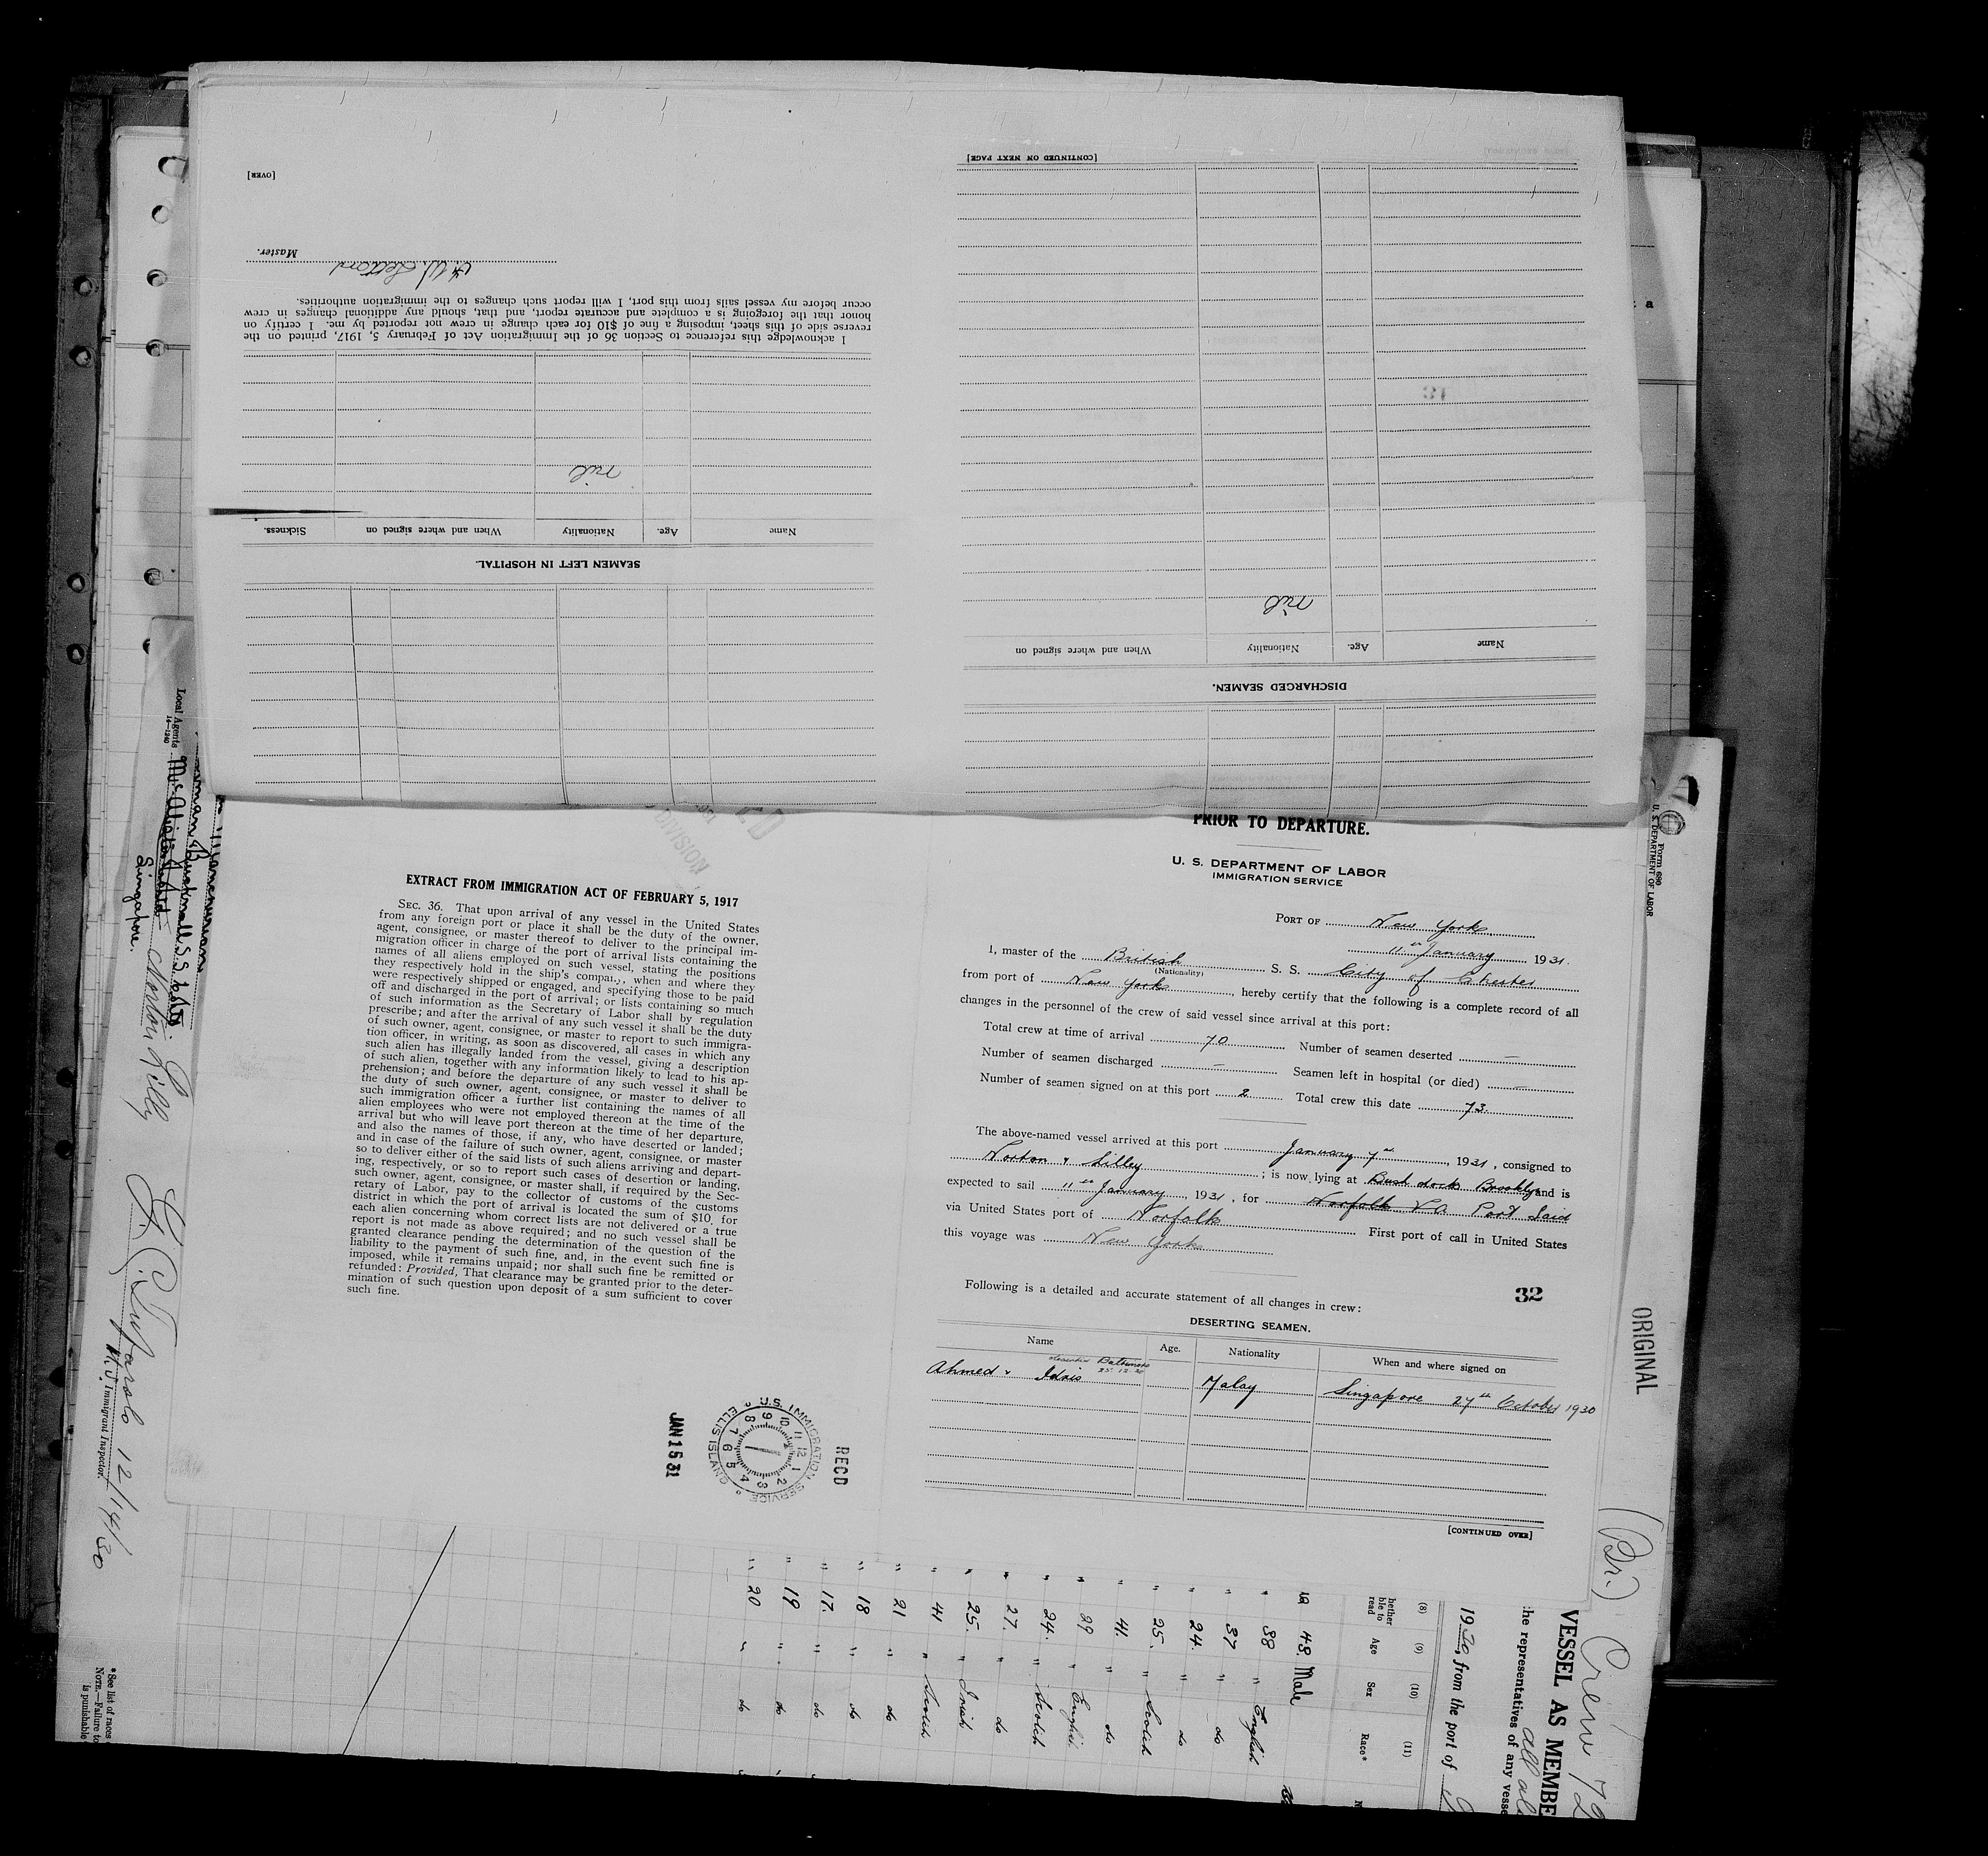 [OVER]
Master.
I acknowledge this reference to Section 36 of the Immigration Act of February 5, 1917, printed on the
reverse side of this sheet, imposing a fine of $10 for each change in crew not reported by me. I certify on
honor that the foregoing is a complete and accurate report, and that, should any additional changes in crew
occur before my vessel sails from this port, I will report such changes to the immigration authorities.
nil
Name Age. Nationality When and where signed on Sickness.
SEAMEN LEFT IN HOSPITAL.
[CONTINUED ON NEXT PAGE]
nil
Name Age. Nationality When and where signed on
DISCHARGED SEAMEN.
DIVISION
EXTRACT FROM IMMIGRATION ACT OF FEBRUARY 5, 1917
SEC. 36. That upon arrival of any vessel in the United States
from any foreign port or place it shall be the duty of the owner,
agent, consignee, or master thereof to deliver to the principal im-
migration officer in charge of the port of arrival lists containing the
names of all aliens employed on such vessel, stating the positions
they respectively hold in the ship's company, when and where they
were respectively shipped or engaged, and specifying those to be paid
off and discharged in the port of arrival; or lists containing so much
of such information as the Secretary of Labor shall by regulation
prescribe; and after the arrival of any such vessel it shall be the duty
of such owner, agent, consignee, or master to report to such immigra-
tion officer, in writing, as soon as discovered, all cases in which any
such alien has illegally landed from the vessel, giving a description
of such alien, together with any information likely to lead to his ap-
prehension; and before the departure of any such vessel it shall be
the duty of such owner, agent, consignee, or master to deliver to
such immigration officer a further list containing the names of all
alien employees who were not employed thereon at the time of the
arrival but who will leave port thereon at the time of her departure,
and also the names of those, if any, who have deserted or landed;
and in case of the failure of such owner, agent, consignee, or master
so to deliver either of the said lists of such aliens arriving and depart-
ing, respectively, or so to report such cases of desertion or landing,
such owner, agent, consignee, or master shall, if required by the Sec-
retary of Labor, pay to the collector of customs of the customs
district in which the port of arrival is located the sum of $10 for
each alien concerning whom correct lists are not delivered or a true
report is not made as above required; and no such vessel shall be
granted clearance pending the determination of the question of the
liability to the payment of such fine, and, in the event such fine is
imposed, while it remains unpaid; nor shall such fine be remitted or
refunded: Provided, That clearance may be granted prior to the deter-
mination of such question upon deposit of a sum sufficient to cover
such fine.
RECD
U.S. IMMIGRATION SERVICE ELLIS ISLAND
JAN 15 31
PRIOR TO DEPARTURE.
U. S. DEPARTMENT OF LABOR
IMMIGRATION SERVICE
PORT OF New York
11th January 1931.
I, master of the British S. S. City of Chester
(Nationality)
from port of New York, hereby certify that the following is a complete record of all
changes in the personnel of the crew of said vessel since arrival at this port:
Total crew at time of arrival 70 Number of seamen deserted —
Number of seamen discharged — Seamen left in hospital (or died) —
Number of seamen signed on at this port 2 Total crew this date 73.
The above-named vessel arrived at this port January 7th, 1931, consigned to
Norton & Lilley; is now lying at Bush dock Brooklyn and is
expected to sail 11th January, 1931, for Norfolk VA Port Said
via United States port of Norfolk First port of call in United States
this voyage was New York
Following is a detailed and accurate statement of all changes in crew:
32
DESERTING SEAMEN.
Name Age. Nationality When and where signed on
deserted Baltimore
Ahmed Idris Malay Singapore 27th October 1930
[CONTINUED OVER]
Form 680
U. S. DEPARTMENT OF LABOR
ORIGINAL
(Br.) Crew 72
VESSEL AS MEMBE
he representatives of any vesse
1930, from the port of
(8) (9) (10) (11)
hether ble to read Age Sex Race*
48. Male
38 " English
37 " do
24. " do
25. " Scotch
41. " do
29 " English
24. " Scotch
27. " do
25. " Irish
41 " Scotch
21 " do
18 " do
17. " do
19 " do
20 " do
Local Agents
14—1240
Norton Lilly
Singapore.
12/14/30
Immigrant Inspector.
*See list of races
NOTE.—Failure to
is punishable